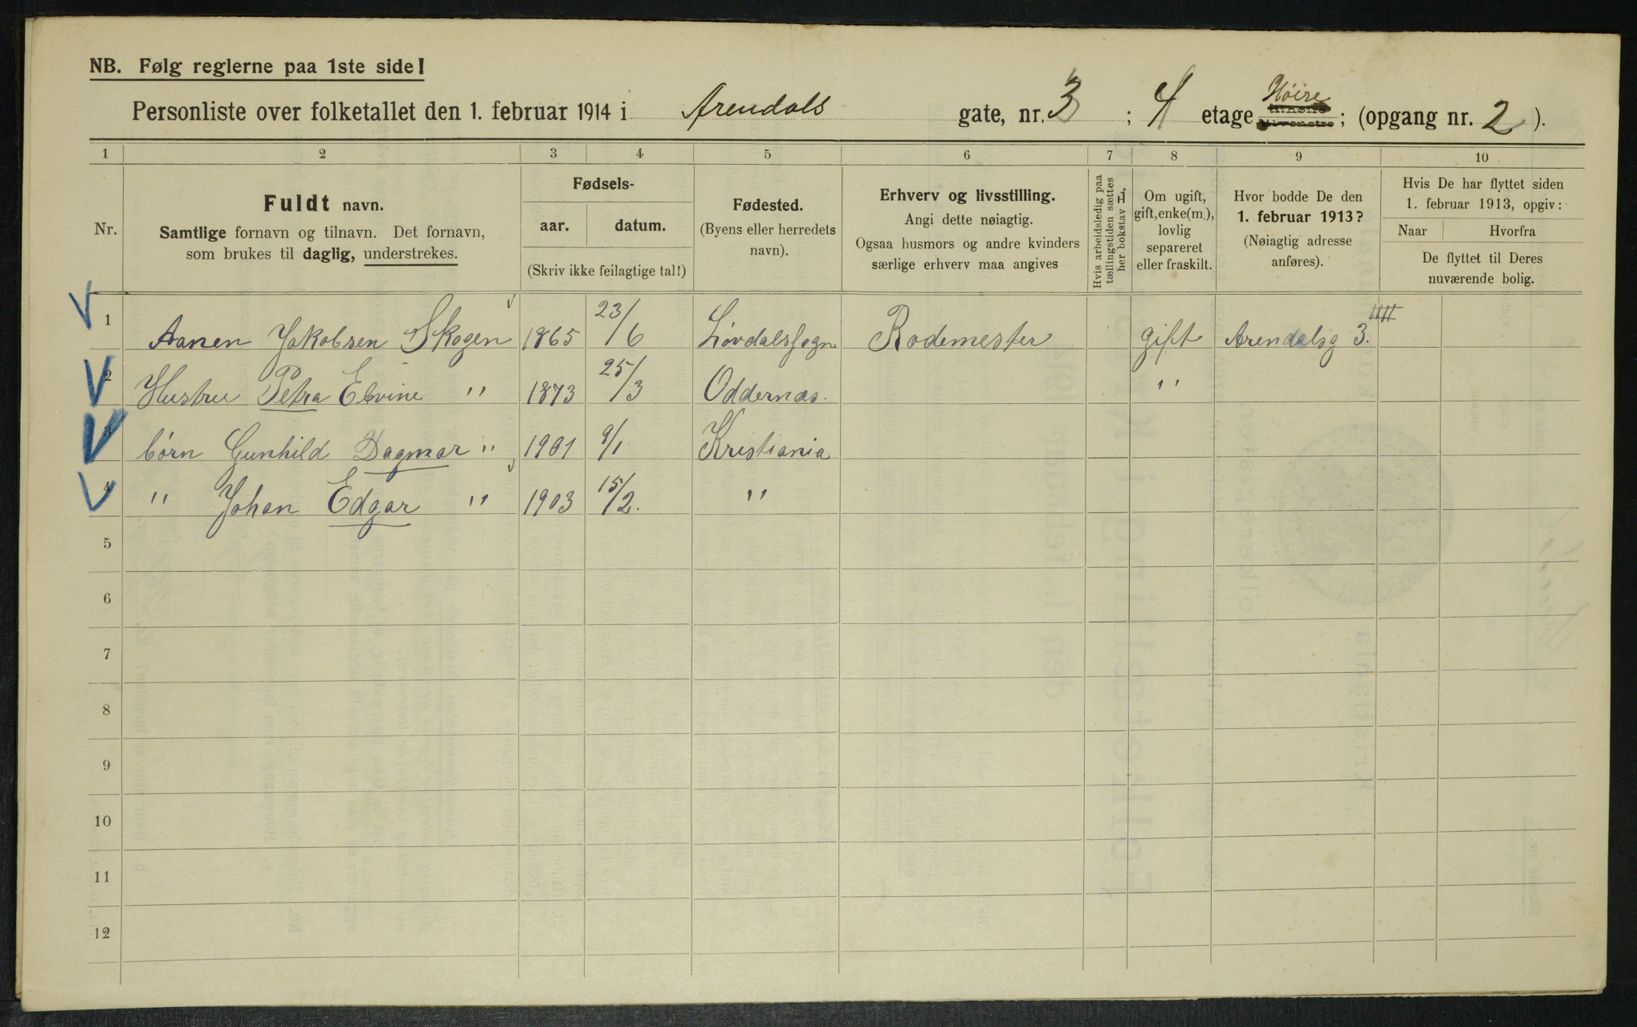 NB. Følg reglerne paa 1ste side!
Personliste over folketallet den 1. februar 1914 i Arendals gate, nr. 3 ; 4 etage Höire ; (opgang nr. 2 ).
1 2 3 4 5 6 7 8 9 10
Nr.
Fuldt navn.
Samtlige fornavn og tilnavn. Det fornavn,
som brukes til daglig, understrekes.
Fødsels-
aar. datum.
(Skriv ikke feilagtige tal!)
Fødested.
(Byens eller herredets
navn).
Erhverv og livsstilling.
Angi dette nøiagtig.
Ogsaa husmors og andre kvinders
særlige erhverv maa angives
Hvis arbeidsledig paa
tællingstiden sættes
her bokstav L.
Om ugift,
gift, enke(m.),
lovlig
separeret
eller fraskilt.
Hvor bodde De den
1. februar 1913?
(Nøiagtig adresse
anføres).
Hvis De har flyttet siden
1. februar 1913, opgiv:
Naar Hvorfra
De flyttet til Deres
nuværende bolig.
1 Aanen Jakobsen Skogen 1865 23/6 Rodemester gift Arendalsg 3.
2 Hustru Petra Elvine " 1873 25/3 Oddernæs. "
børn Gunhild Dagmar " 1901 9/1 Kristiania
4 " Johan Edgar " 1903 15/2. "
5
6
7
8
9
10
11
12